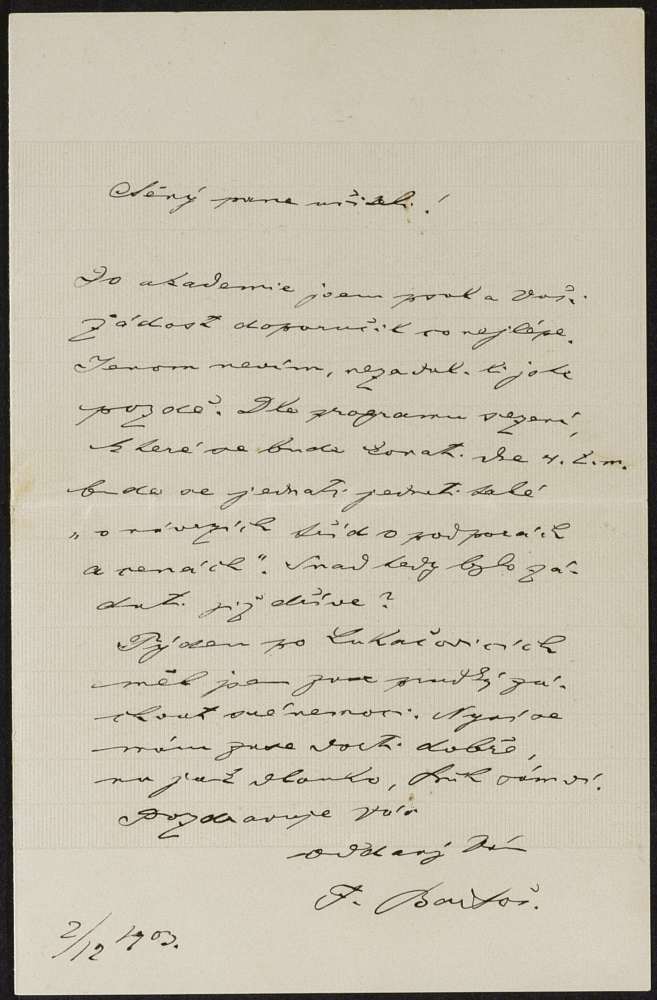 Ctěný pane učiteli!
Do akademie jsem psal a Vaši
žádost doporučil co nejlépe.
Jenom nevím, nezadal-li jste
pozdě. Dle programu sezení,
které se bude konati dne 4. t. m.
bude se jednati jednati také
„o návrzích tříd o podporách
a cenách". Snad tedy bylo žá-
dati již dříve?
Týden po Luhačovicích
měl jsem zase prudký zá-
chvat své nemoci. Nyní se
mám zase dosti dobře,
na jak dlouho, Bůh sám ví.
Pozdravuje Vás
oddaný Vám
F. Bartoš.
2/12 1903.